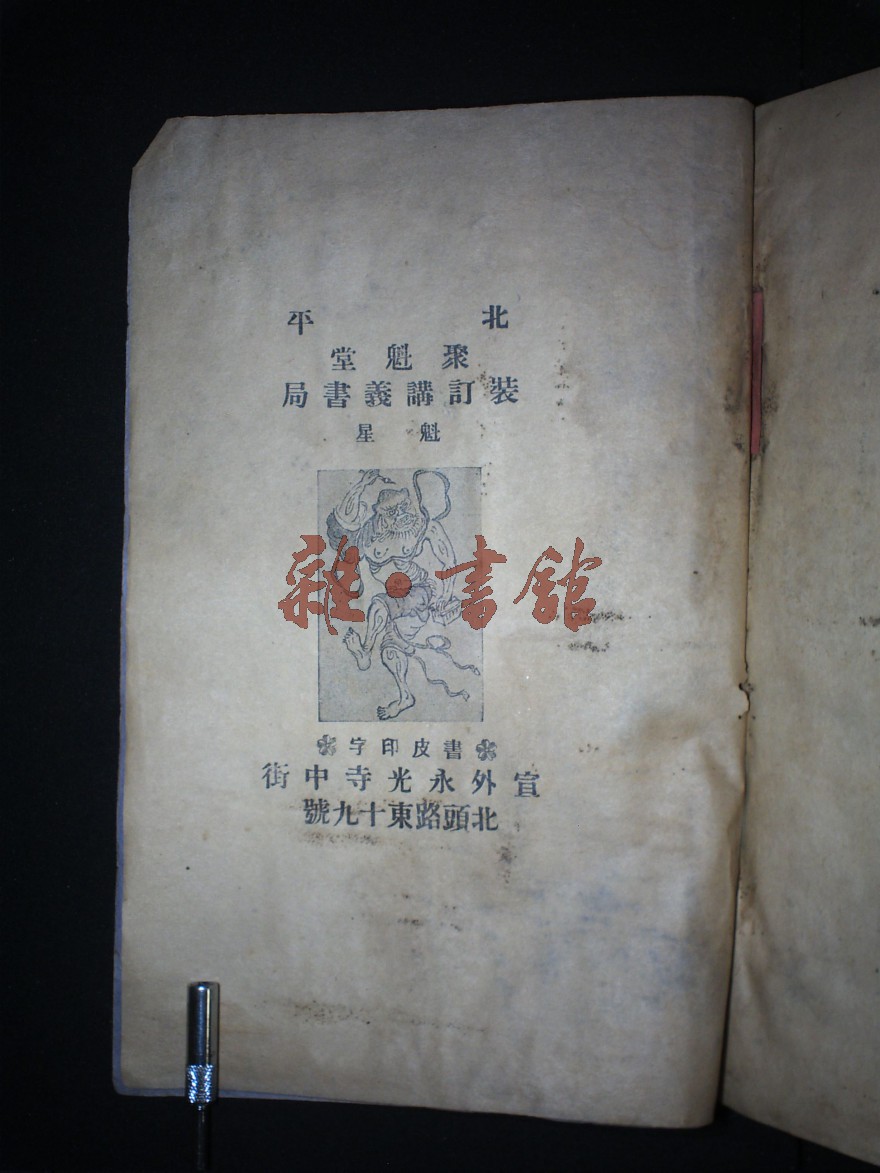 北平
聚魁堂
裝訂講義書局
魁星
雜·書館
書皮印字
宣外永光寺中街
北頭路東十九號